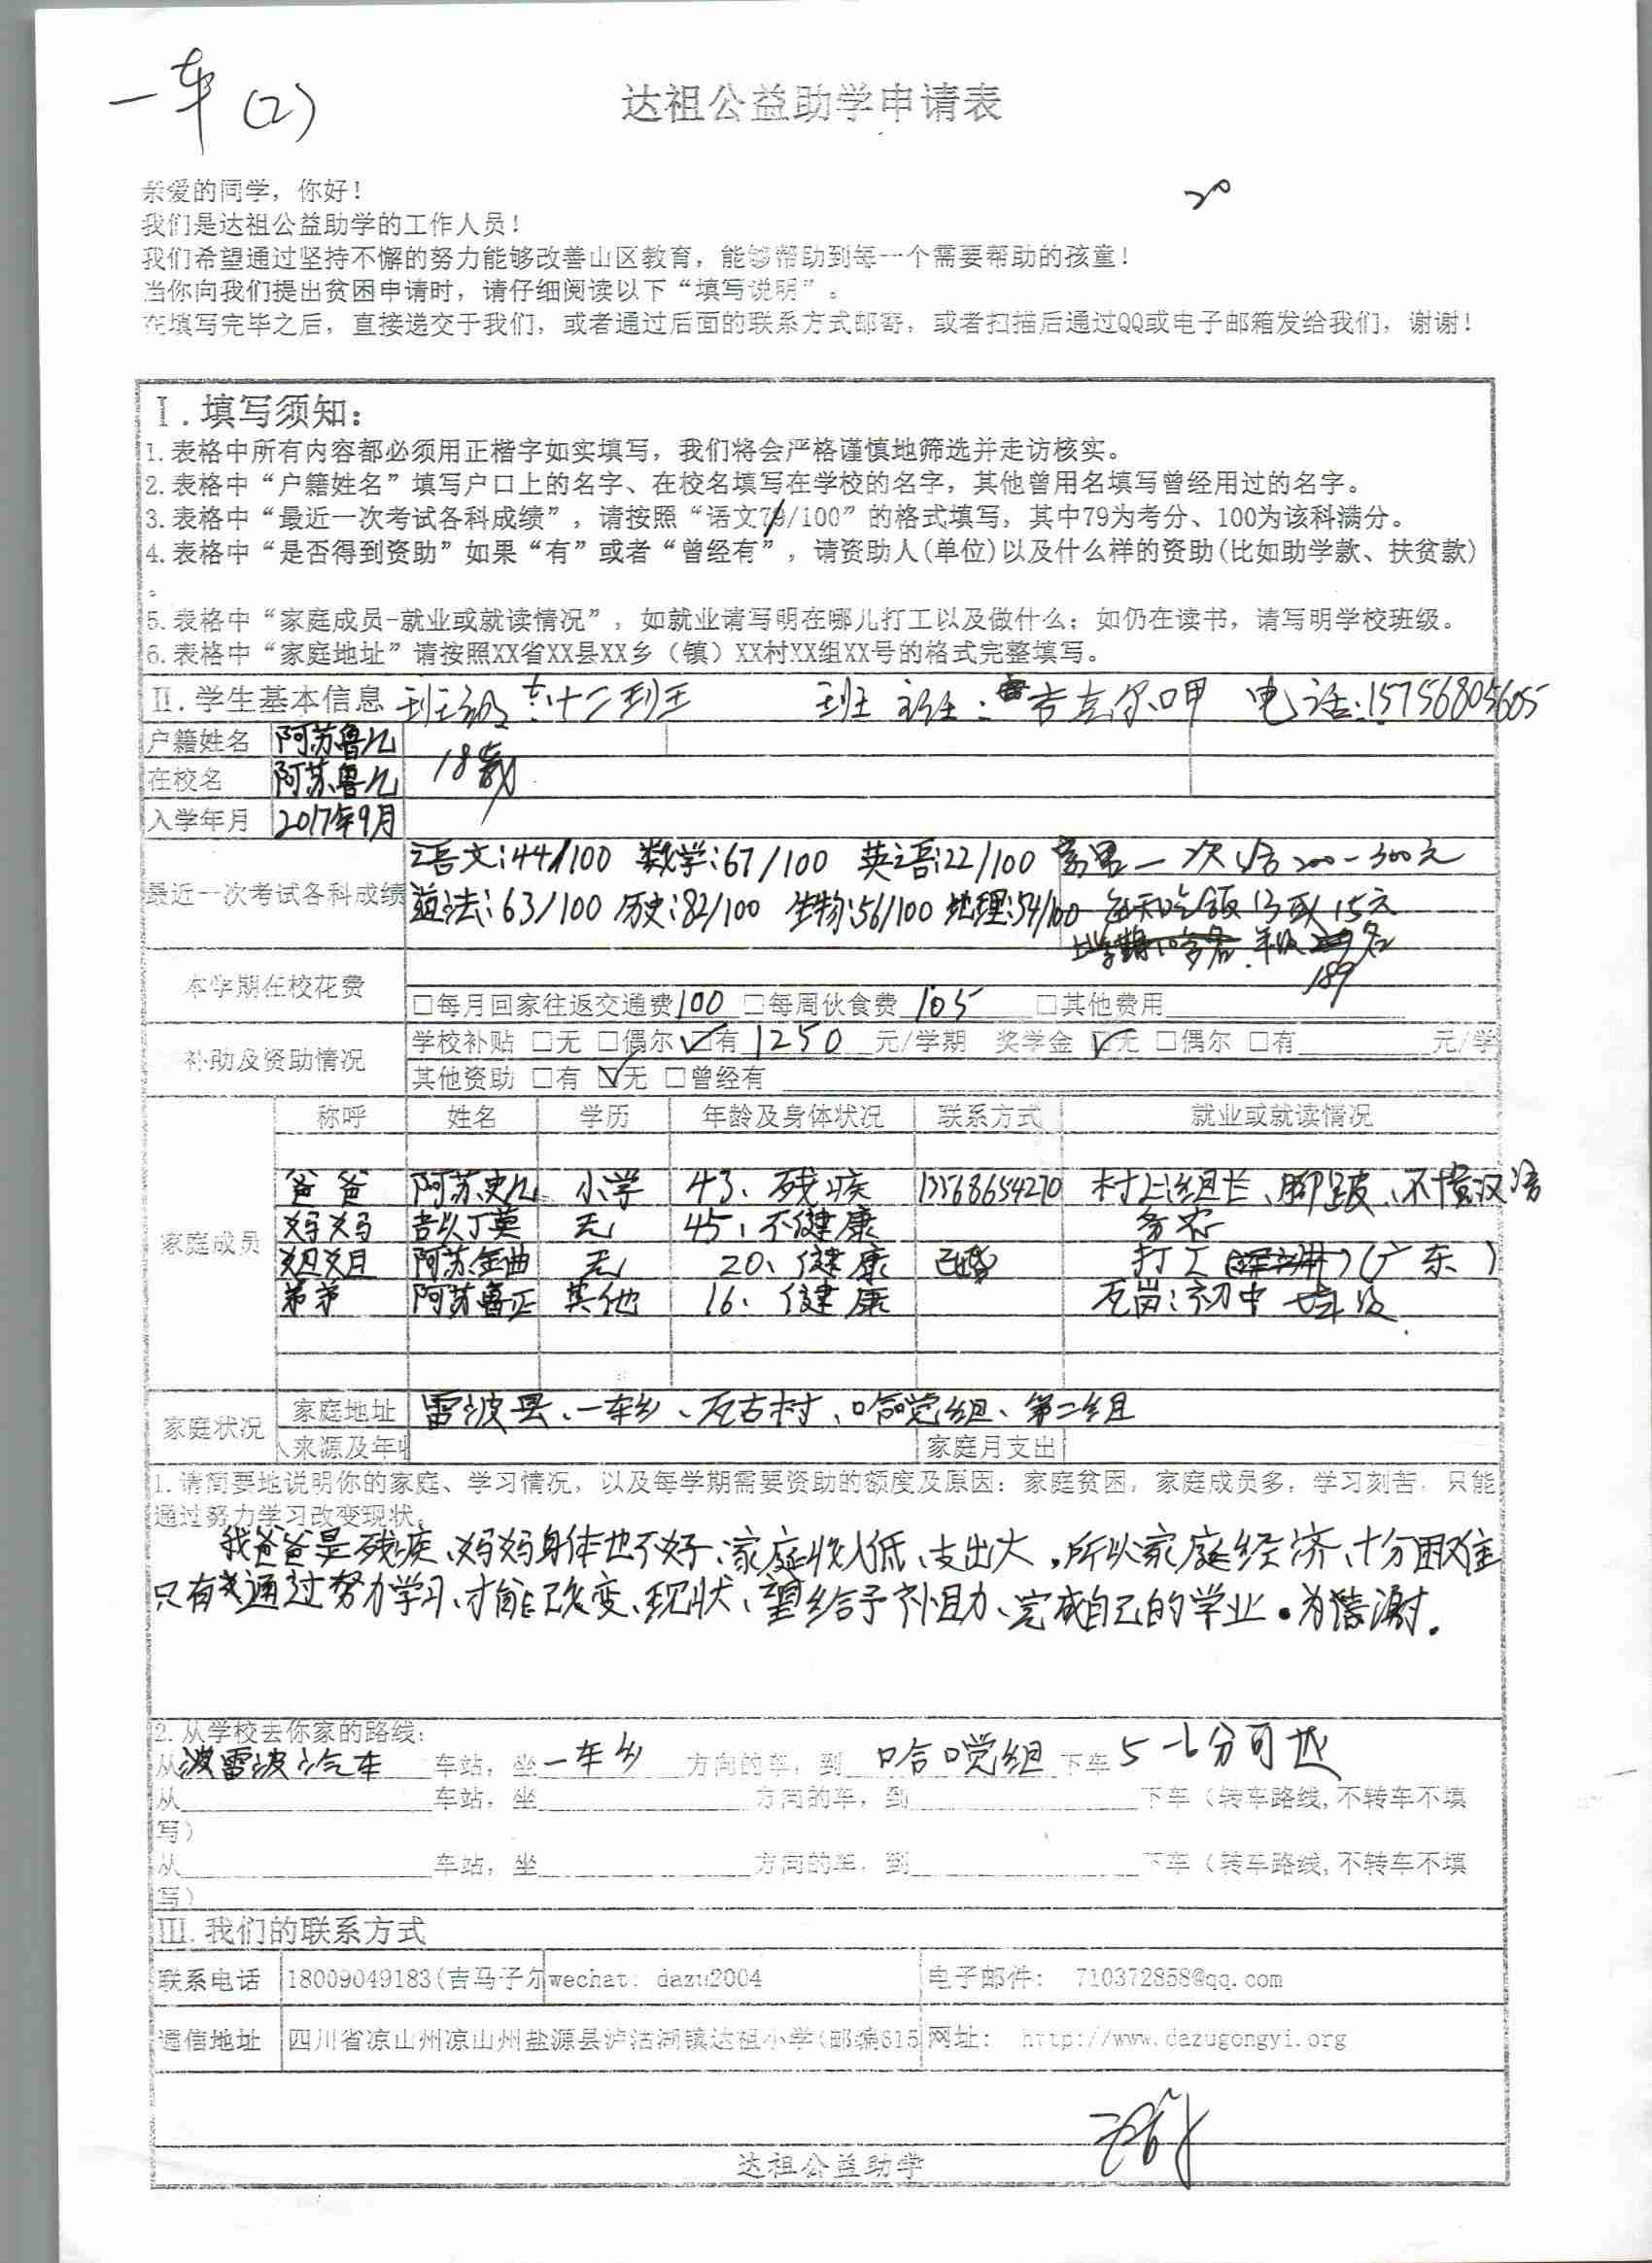 一车(2)
达祖公益助学申请表
20
亲爱的同学，你好！
我们是达祖公益助学的工作人员！
我们希望通过坚持不懈的努力能够改善山区教育，能够帮助到每一个需要帮助的孩童！
当你向我们提出贫困申请时，请仔细阅读以下“填写说明”。
在填写完毕之后，直接递交于我们，或者通过后面的联系方式邮寄，或者扫描后通过QQ或电子邮箱发给我们，谢谢！
I.填写须知：
1.表格中所有内容都必须用正楷字如实填写，我们将会严格谨慎地筛选并走访核实。
2.表格中“户籍姓名”填写户口上的名字、在校名填写在学校的名字，其他曾用名填写曾经用过的名字。
3.表格中“最近一次考试各科成绩”，请按照“语文79/100”的格式填写，其中79为考分、100为该科满分。
4.表格中“是否得到资助”如果“有”或者“曾经有”，请资助人(单位)以及什么样的资助(比如助学款、扶贫款)
。
5.表格中“家庭成员-就业或就读情况”，如就业请写明在哪儿打工以及做什么；如仍在读书，请写明学校班级。
6.表格中“家庭地址”请按照XX省XX县XX乡（镇）XX村XX组XX号的格式完整填写。
II.学生基本信息 班级:十二班 班主任:吉克尔呷 电话:15756805605
户籍姓名 阿苏鲁儿
在校名 阿苏鲁儿 18岁
入学年月 2017年9月
最近一次考试各科成绩 语文:44/100 数学:67/100 英语:22/100 一次给200-300元
道法:63/100 历史:82/100 生物:56/100 地理:54/100 每天吃饭13或15元
年级 名
189
本学期在校花费 □每月回家往返交通费100 □每周伙食费105 □其他费用
补助及资助情况 学校补贴 □无 □偶尔 ☑有1250元/学期 奖学金 ☑无 □偶尔 □有 元/学
其他资助 □有 ☑无 □曾经有
家庭成员 称呼 姓名 学历 年龄及身体状况 联系方式 就业或就读情况
爸爸 阿苏史儿 小学 43、残疾 13568654270 村上组长、脚跛、不懂汉语
妈妈 吉以丁莫 无 45、不健康 务农
姐姐 阿苏金曲 无 20、健康 已婚 打工（广东）
弟弟 阿苏鲁正 其他 16、健康 瓦岗:初中 七年级
家庭状况 家庭地址 雷波县、一车乡、瓦古村、哈觉组、第二组
入来源及年收 家庭月支出
1.请简要地说明你的家庭、学习情况，以及每学期需要资助的额度及原因：家庭贫困，家庭成员多，学习刻苦，只能
通过努力学习改变现状。
我爸爸是残疾、妈妈身体也不好、家庭收入低、支出大，所以家庭经济、十分困难
只有通过努力学习、才能改变、现状、望给予补助、完成自己的学业。为感谢。
2.从学校去你家的路线：
从雷波汽车车站，坐一车乡方向的车，到哈觉组下车5-6分可达
从 车站，坐 方向的车，到 下车（转车路线,不转车不填
写）
从 车站，坐 方向的车，到 下车（转车路线,不转车不填
写）
III.我们的联系方式
联系电话 18009049183(吉马子尔 wechat: dazu2004 电子邮件: 710372858@qq.com
通信地址 四川省凉山州凉山州盐源县泸沽湖镇达祖小学(邮编615 网址: http://www.dazugongyi.org
达祖公益助学